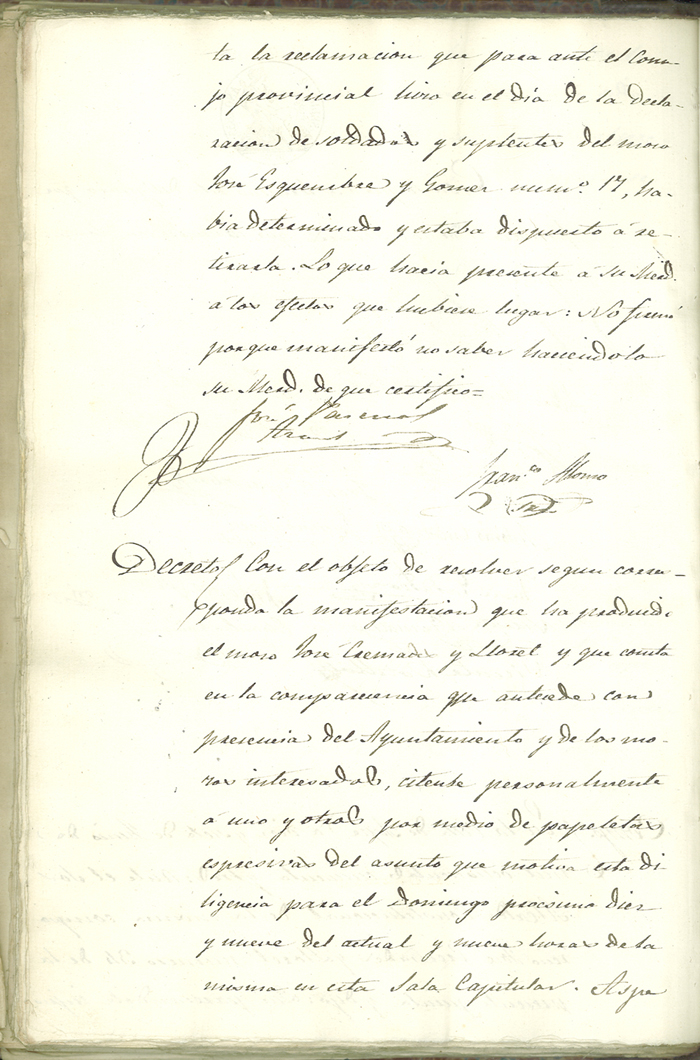 ta la reclamacion que para ante el Conse-
jo provincial hizo en el dia de la decla-
racion de soldados y suplentes del mozo
José Esquembre y Gomez num.º 17, ha-
bia determinado y estaba dispuesto á re-
tirarla. Lo que hacia presente á su Merd.
á los efectos que hubiere lugar: No firmó
porque manifestó no saber haciendolo
su Merd. de que certifico=
José Pascual
Fran.co Alonso
Decreto Con el objeto de resolver segun corres-
ponda la manifestacion que ha producido
el mozo José Cremades y Lloret y que consta
en la comparecencia que antecede con
presencia del Ayuntamiento y de los mo-
zos interesados, citense personalmente
á uno y otros por medio de papeletas
espresivas del asunto que motiva esta di-
ligencia para el Domingo procsimo diez
y nueve del actual y nueve horas de la
misma en esta Sala Capitular. Aspe